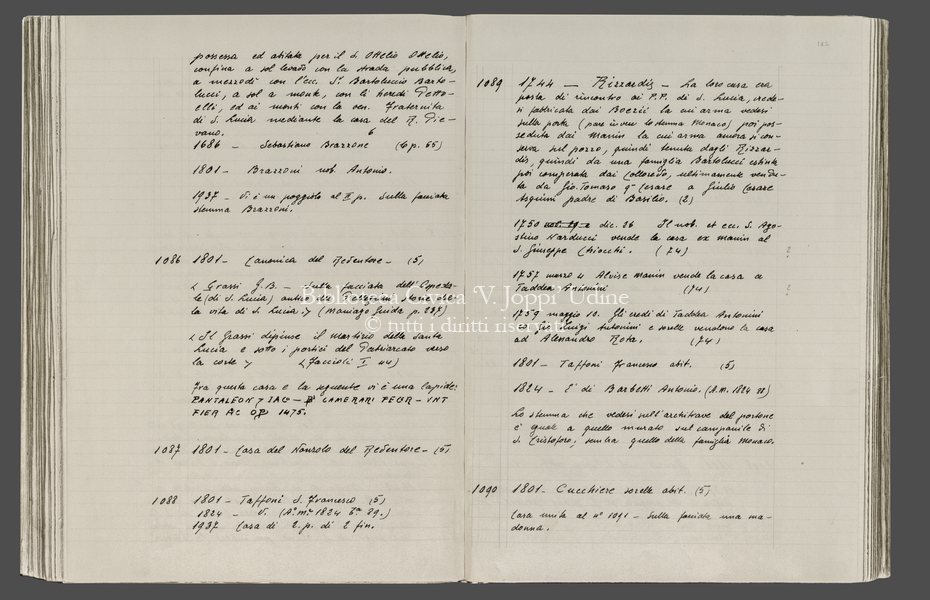 possessa ed abitata per il S. Ottelio Ottelio,
confina a sol levado con la strada pubblica,
a mezzodì con l'ecc. Sr Bartoluccio Barto-
lucci, a sol a monte, con li heredi Petto-
elli, ed ai monti con la ven. Fraternita
di S. Lucia mediante la casa del R. Pie-
vano.
1686 - Sebastiano Brazzone (6 p. 55)
1801 - Brazzoni nob. Antonio.
1937 - Vi è un poggiolo al II p. Sulla facciata
stemma Brazzoni.
1086 1801 - Canonica del Redentore - (5)
Grassi G.B. - Sulla facciata dell'
le (di S. Lucia)
la vita di S. Lucia (Maniago Guida p. 237)
Il Grassi dipinse il martirio della Santa
Lucia e sotto i portici del Patriarcato verso
la corte (Faccioli I 44)
Fra questa casa e la seguente vi è una lapide:
PANTALEON 7 IAC - CAMERARI FECER - VNT
FIER AC OP 1475.
1087 1801 - Casa del Nonzolo del Redentore - (5)
1088 1801 - Taffoni S. Francesco (5)
1824 - V. (A. M. 1824 89.)
1937 Casa di 2. p. di 2 fin.
113
1089 1744 - Rizzardis - La loro casa era
posta di rincontro ai P.P. di S. Lucia, crede-
si fabricata dai Boezii la cui arma vedesi
sulla porta (pare invece lo stemma Monaco) poi pos-
seduta dai Manin la cui arma ancora si con-
serva sul pozzo, quindi tenuta dagli Rizzar-
dis, quindi da una famiglia Bartolucci estinta
poi comperata dai Colloredo, ultimamente vendu-
ta da Gio. Tomaso qm Cesare a Giulio Cesare
Asquini padre di Basilio. (2)
1750 dic. 26 Il nob. et ecc. S. Ago-
stino Narducci vende la casa ex manin al
S. Giuseppe Chiocchi. (74) ?
1757 marzo 4 Alvise Manin vende la casa a
Taddea Antonini (74) ?
1759 maggio 10. Gli eredi di Taddea Antonini
Luigi Antonini e sorelle vendono la casa
ad Alesandro Rota. (74)
1801 - Taffoni Francesco abit. (5)
1824 - E' di Barbetti Antonio. (A.M. 1824 )
Lo stemma che vedesi sull'architrave del portone
è quale a quello murato sul campanile di
S. Cristoforo; sembra quello della famiglia Monaco.
1090 1801 - Cucchiere sorelle abit. (5)
Casa unita al n° 1091 - Sulla facciata una ma-
donna.
Biblioteca Civica 'V. Joppi' Udine
© tutti i diritti riservati